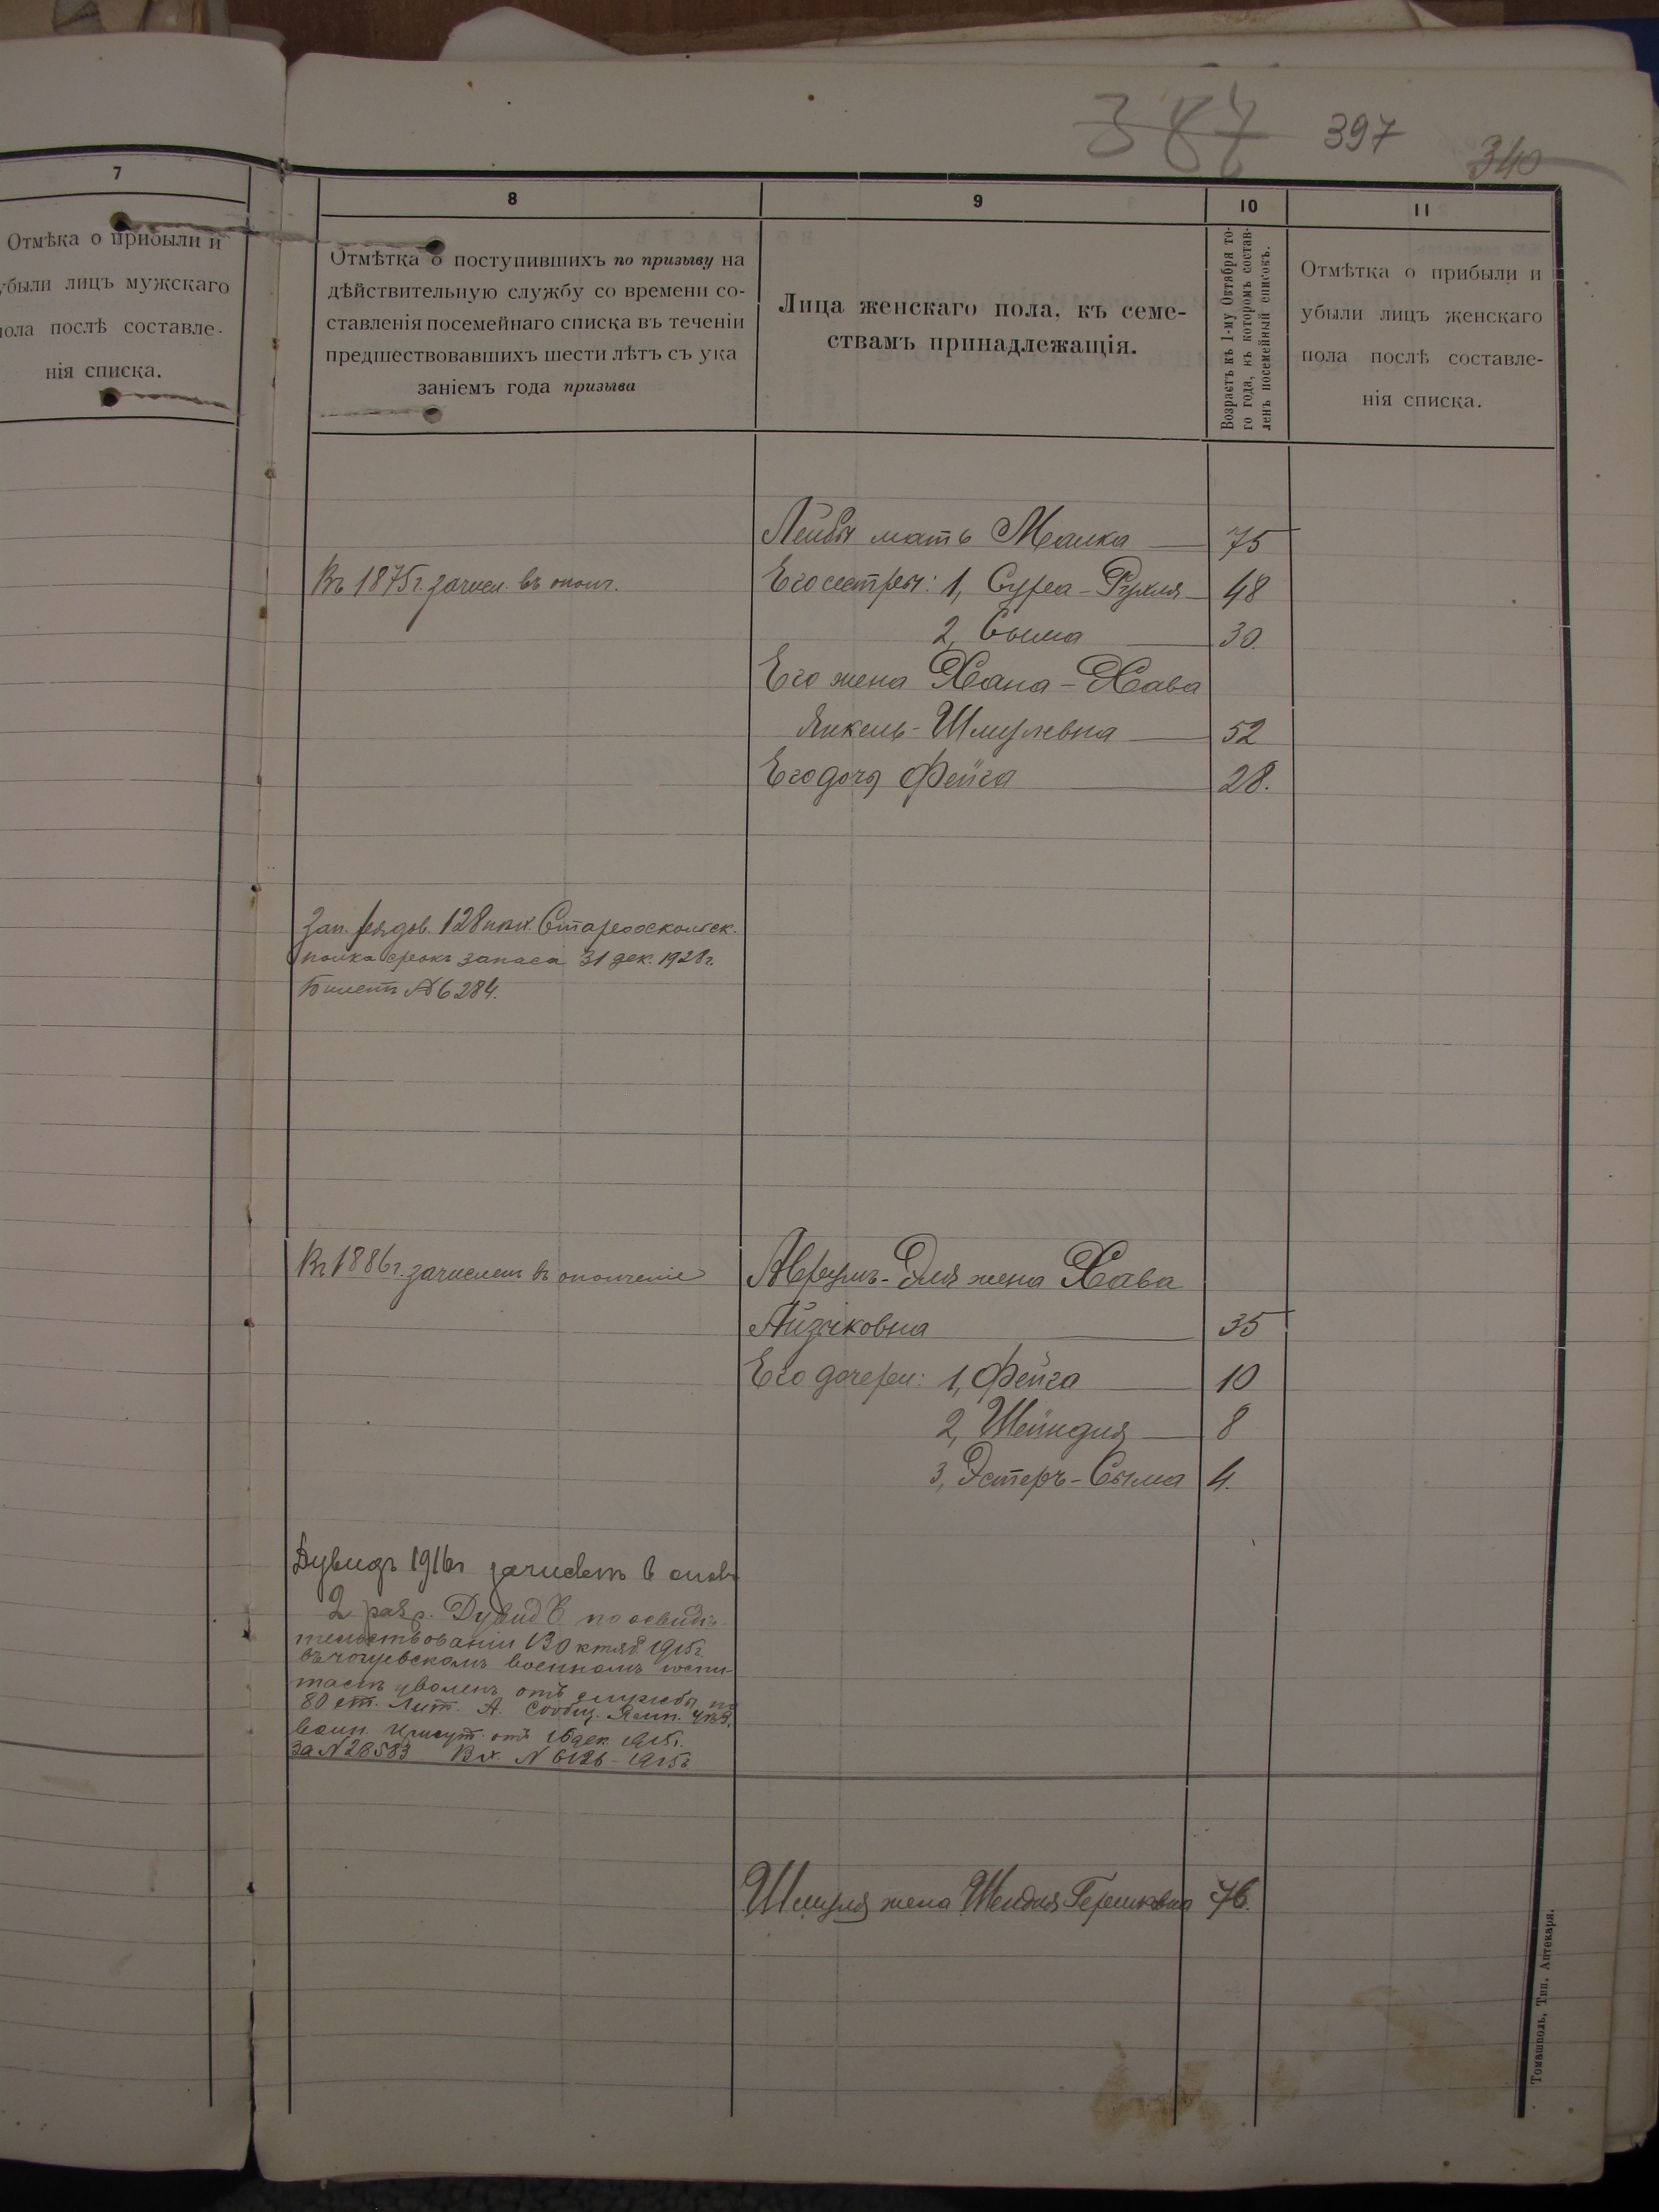 387 397 340
7
Отмѣка о прибыли и
убыли лицъ мужскаго
пола послѣ составле-
нія списка.
8
Отмѣтка о поступившихъ по призыву на
дѣйствительную службу со времени со-
ставленія посемейнаго списка въ теченіи
предшествовавшихъ шести лѣтъ съ ука
заніемъ года призыва
9
Лица женскаго пола, къ семе-
ствамъ принадлежащія.
10
Возрастъ къ 1-му Октября то-
го года, къ которомъ состав-
ленъ посемейный списокъ.
11
Отмѣтка о прибыли и
убыли лицъ женскаго
пола послѣ составле-
нія списка.
Лейбы мать Малка 75
Въ 1875 г. зачисл. въ ополч.
Его сестры: 1, Сура-Рухля 48
2, Сыма 30.
Его жена Хана-Хава
Янкель-Шмулевна 52
Его дочь Фейга 28.
Зап. рядов. 128 пѣх. Старооскольск.
полка срокъ запаса 31 дек. 1928 г.
Билетъ № 6284.
Въ 1886 г. зачисленъ въ ополченіе
Аврумъ-Эля жена Хава
Айзиковна 35
Его дочери: 1, Фейга 10
2, Шейндля 8
3, Эстеръ-Сыма 4.
Дувидъ 1916 г зачислен в ополч
2 разр. Дувидъ по освидѣ-
тельствованіи 13 Октяб. 1915 г.
въ чугуевскомъ военномъ госпи-
талѣ уволенъ отъ службы по
80 ст. Лит. А. Сообщ. Ямп. уѣзд.
воин. Присут. отъ 16 дек. 1915 г.
За N 28583 Вх. N 6126 - 1915 г
Шмуля жена Шендля Гершковна 76.
Томашполь, Тип. Аптекаря.